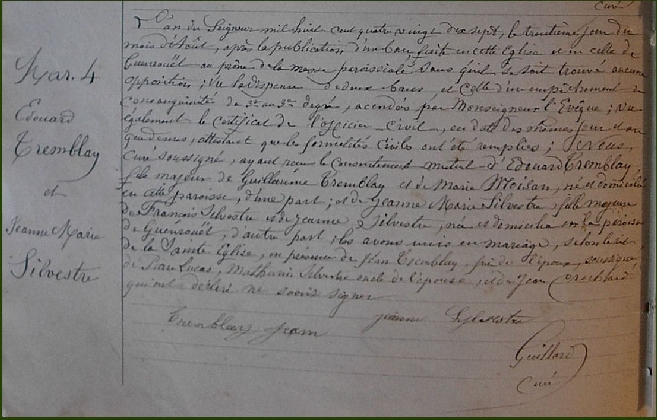 Curé
Mar. 4
Edouard
Tremblay
et
Jeanne Marie
Silvestre
L'an du Seigneur mil huit cent quatre vingt dix sept, le trentième jour du
mois d'Août, après la publication d'un ban faite en cette Eglise et en celle de
Guenrouët au prône de la messe paroissiale sans qu'il se soit trouvé aucune
opposition; Vu la dispense de deux bans, et celle d'un empêchement de
consanguinité du 3e au 3e degré, accordées par Monseigneur l'Evêque; Vu
également le certificat de l'officier civil, en date des mêmes jour et an
que dessus, attestant que les formalités civiles ont été remplies; Nous,
Curé soussigné, ayant reçu le consentement mutuel d'Edouard Tremblay,
fils majeur de Guillaume Tremblay et de Marie Moisan, né et domicilié
en cette paroisse, d'une part; et de Jeanne Marie Silvestre, fille majeure
de François Silvestre et de Jeanne Silvestre, née et domiciliée en la paroisse
de Guenrouët, d'autre part; les avons unis en mariage, selon le rit
de la Sainte Eglise, en présence de Jean Tremblay, frère de l'époux, soussigné,
de Jean Lucas, Mathurin Silvestre oncle de l'épouse, et de Jean
qui ont déclaré ne savoir signer
Tremblay Jean Jeanne Sylvestre
Guillard
Curé